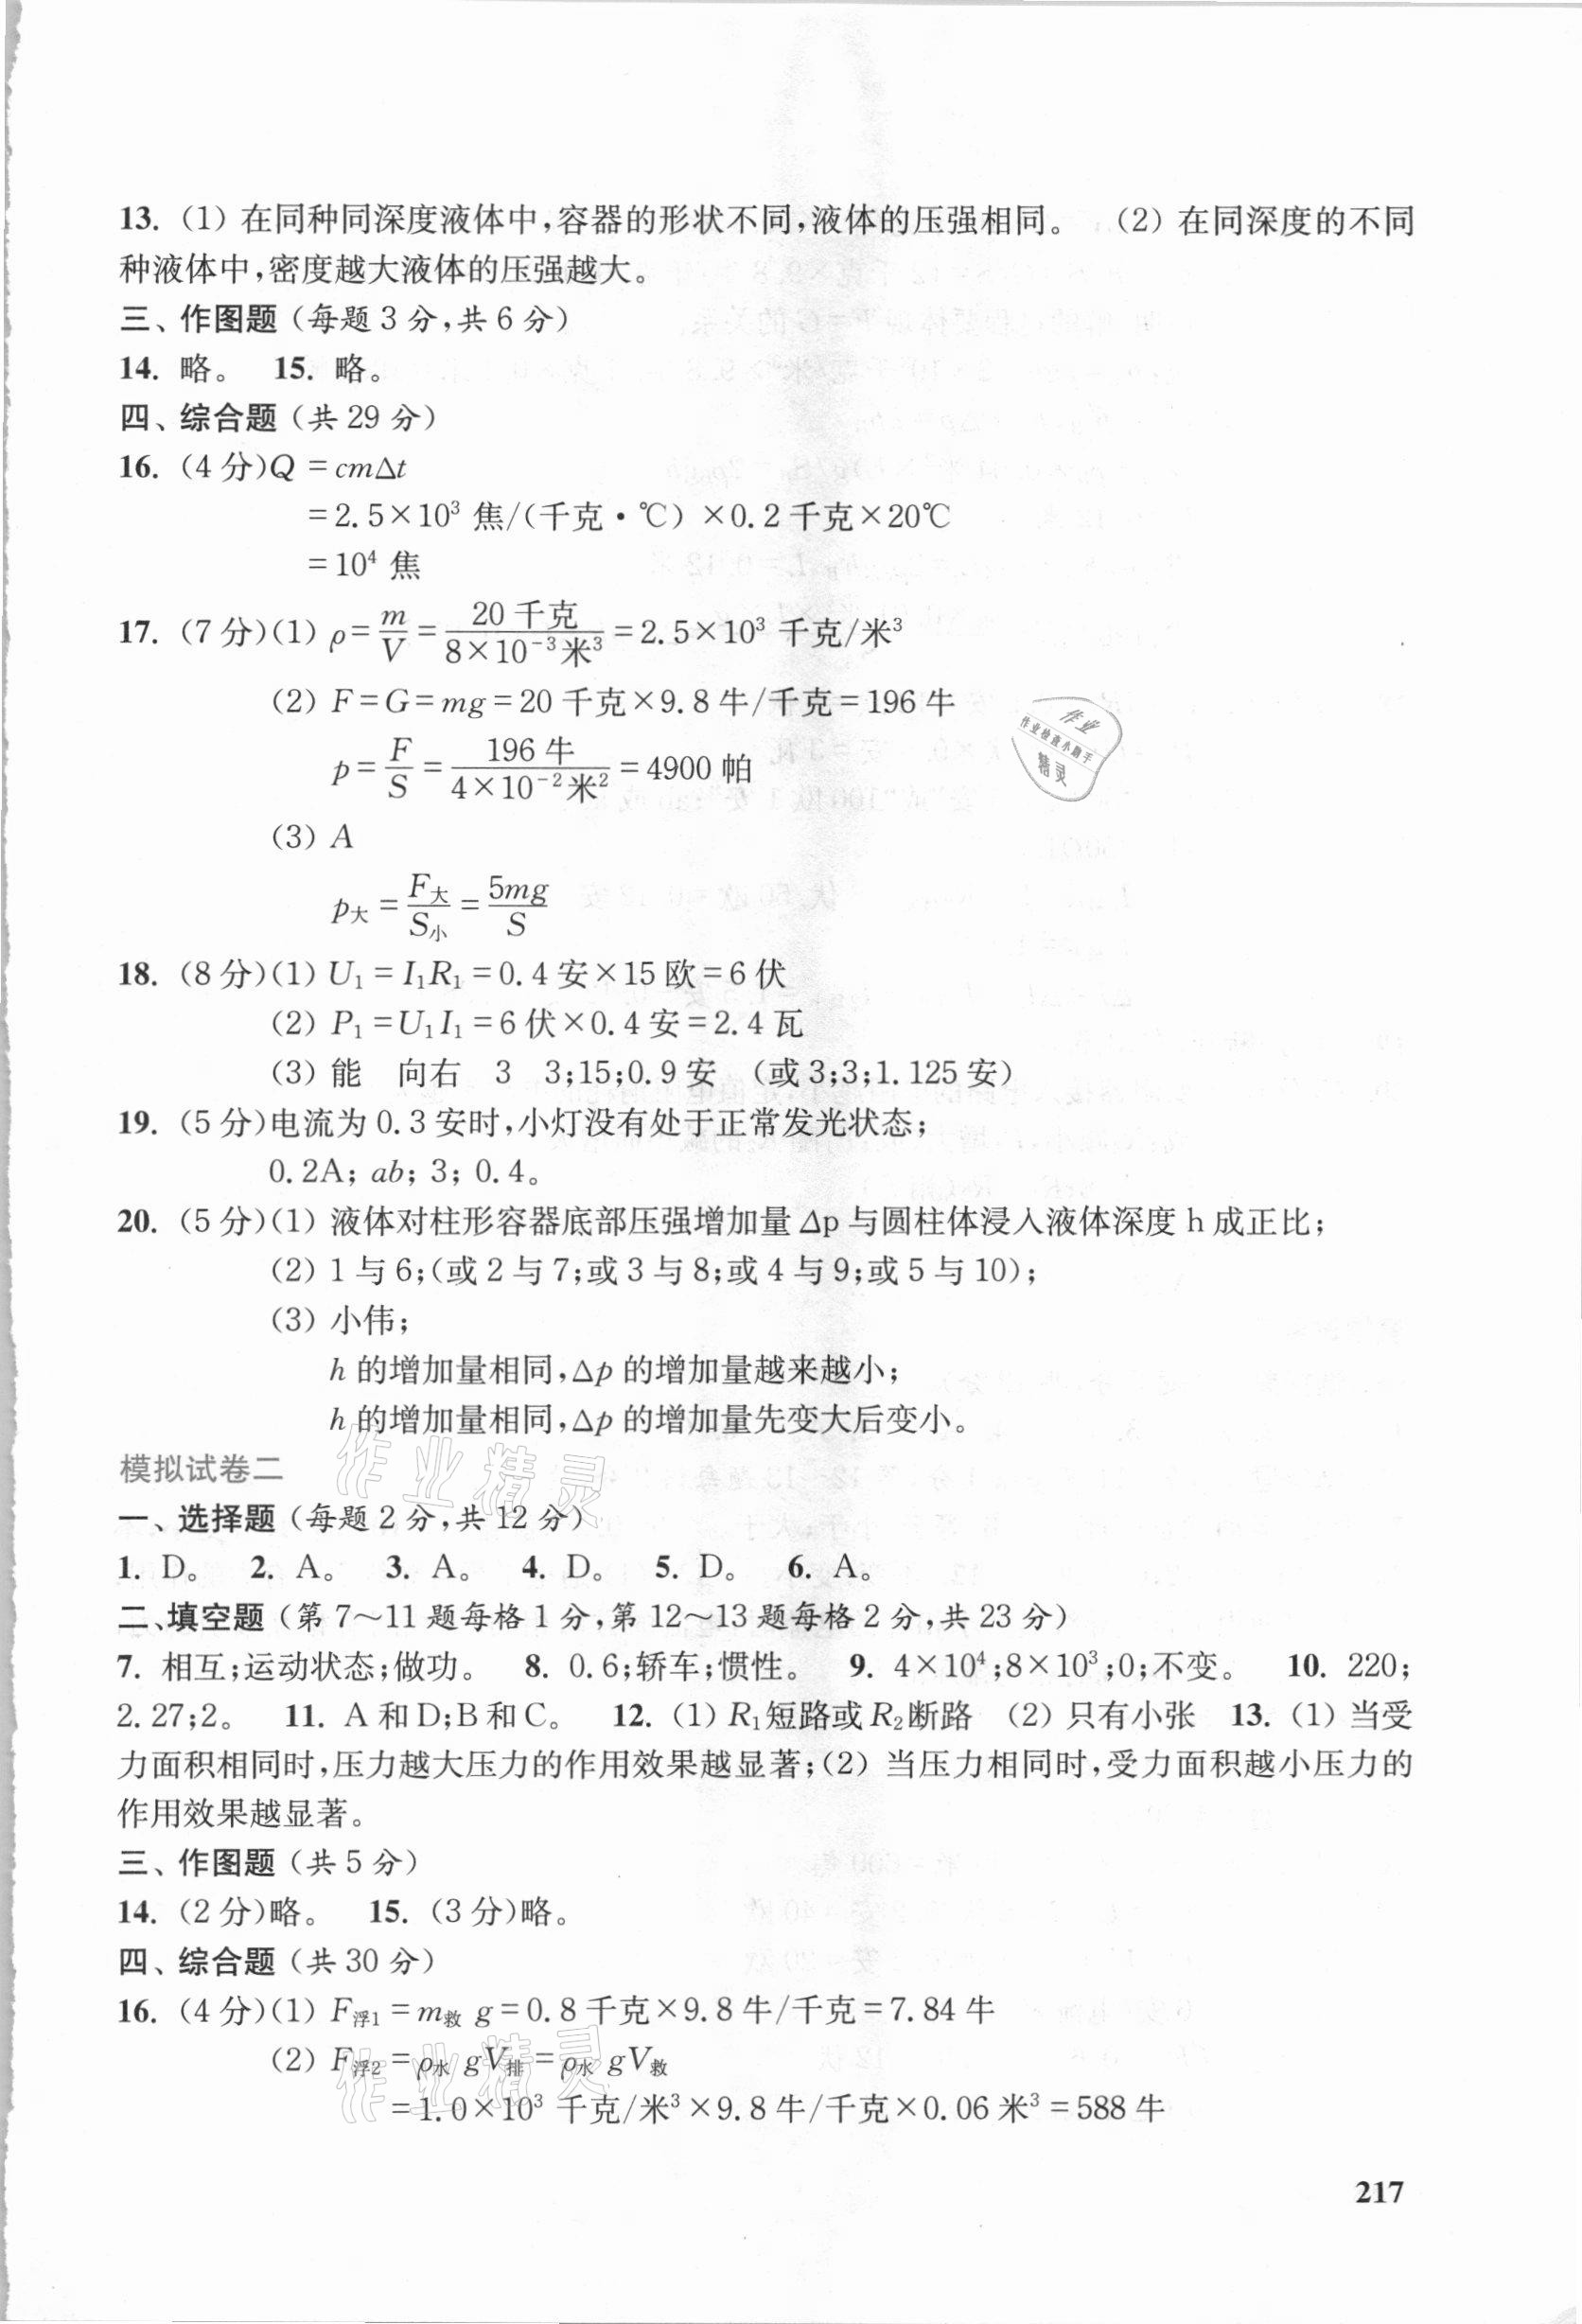 13. (1) 在同种同深度液体中,容器的形状不同,液体的压强相同。 (2) 在同深度的不同
种液体中,密度越大液体的压强越大。
三、作图题(每题3分,共6分)
14. 略。 15. 略。
四、综合题(共29分)
16. (4分)Q = cmΔt
=2.5×10³ 焦/(千克·℃) ×0.2千克×20℃
=10⁴ 焦
17. (7分)(1) ρ=m/V=20千克/8×10⁻³米³=2.5×10³ 千克/米³
(2) F=G=mg=20千克×9.8牛/千克=196牛
p=F/S=196牛/4×10⁻²米²=4900帕
(3) A
p大=F大/S小=5mg/S
18. (8分)(1) U₁=I₁R₁=0.4安×15欧=6伏
(2) P₁=U₁I₁=6伏×0.4安=2.4瓦
(3) 能 向右 3 3;15;0.9安 (或3;3;1.125安)
19. (5分)电流为0.3安时,小灯没有处于正常发光状态;
0.2A; ab; 3; 0.4。
20. (5分)(1) 液体对柱形容器底部压强增加量Δp与圆柱体浸入液体深度h成正比;
(2) 1与6;(或2与7;或3与8;或4与9;或5与10);
(3) 小伟;
h的增加量相同,Δp的增加量越来越小;
h的增加量相同,Δp的增加量先变大后变小。
模拟试卷二
一、选择题(每题2分,共12分)
1. D。 2. A。 3. A。 4. D。 5. D。 6. A。
二、填空题(第7～11题每格1分,第12～13题每格2分,共23分)
7. 相互;运动状态;做功。 8. 0.6;轿车;惯性。 9. 4×10⁴;8×10³;0;不变。 10. 220;
2.27;2。 11. A和D;B和C。 12. (1) R₁短路或R₂断路 (2) 只有小张 13. (1) 当受
力面积相同时,压力越大压力的作用效果越显著;(2) 当压力相同时,受力面积越小压力的
作用效果越显著。
三、作图题(共5分)
14. (2分)略。 15. (3分)略。
四、综合题(共30分)
16. (4分)(1) F浮1=m救g=0.8千克×9.8牛/千克=7.84牛
(2) F浮2=ρ水gV排=ρ水gV救
=1.0×10³ 千克/米³×9.8牛/千克×0.06米³=588牛
217
作业
作业检查小助手
精灵
作业精灵
作业精灵